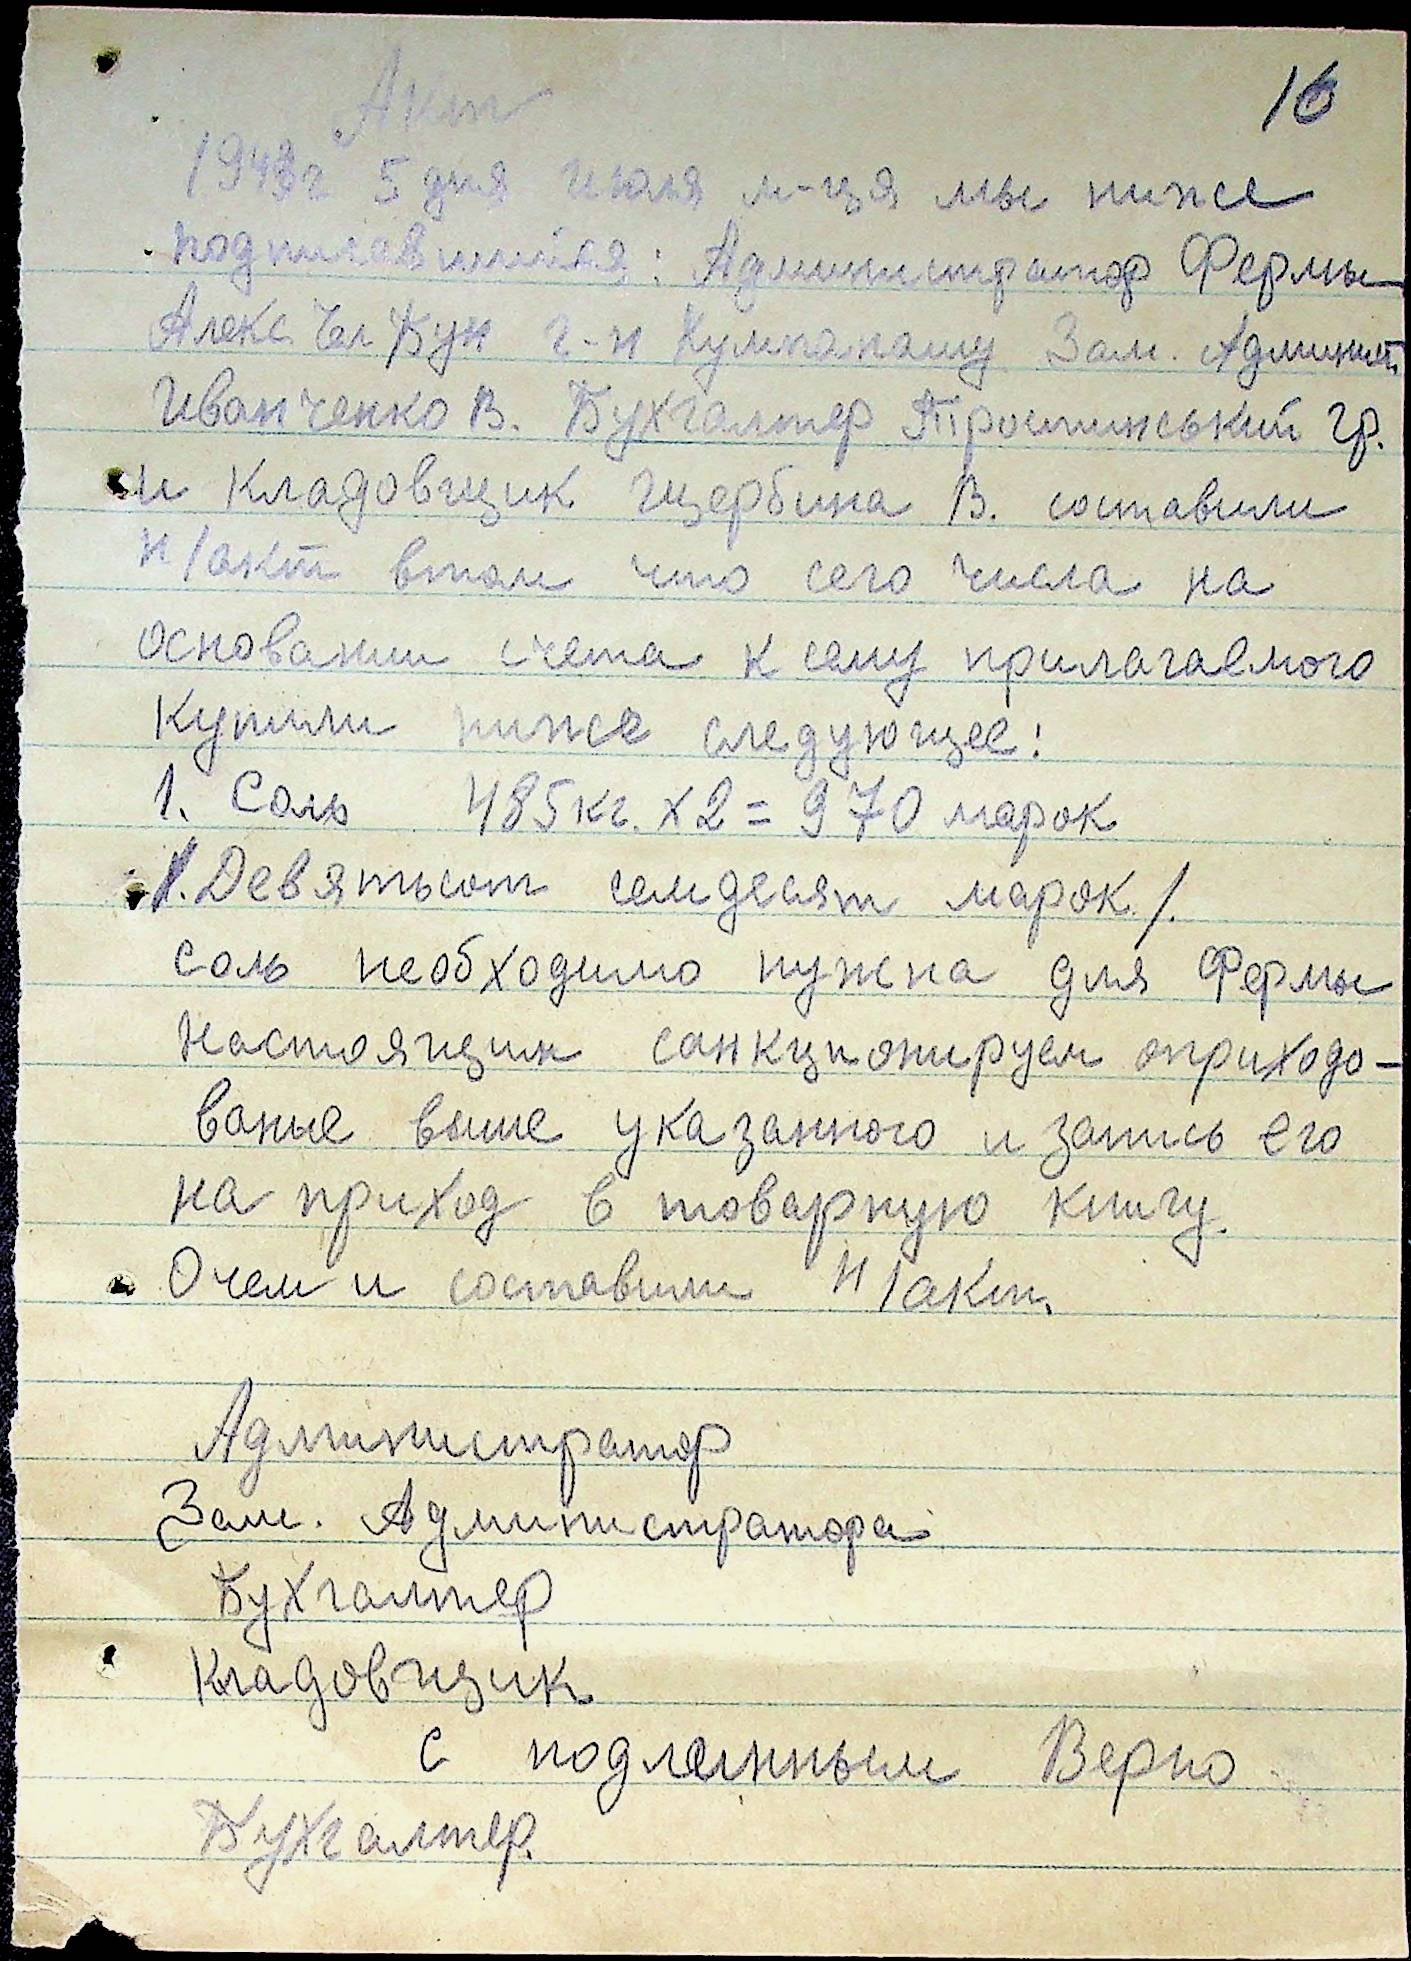 16
Акт
1943г 5 дня июля м-ця мы ниже
подписавшийся: Администратор Фермы
Алекс. Чел Бун г-н Кумпанашу Зам. Админист.
Иванченко В. Бухгалтер Тростинський Гр.
и кладовщик Щербина В. составили
н/акт втом что сего числа на
основании счета к сему прилагаемого
купили ниже следующее:
1. Соль 485кг. х 2 = 970 марок
/.Девятьсот семдесят марок./.
соль необходимо нужна для Фермы
настоящим санкционируем оприходо-
ванье выше указанного и запись его
на приход в товарную книгу.
Очем и составили н/акт.
Администратор
Зам. Администратора
Бухгалтер
Кладовщик
С подленным Верно
Бухгалтер.